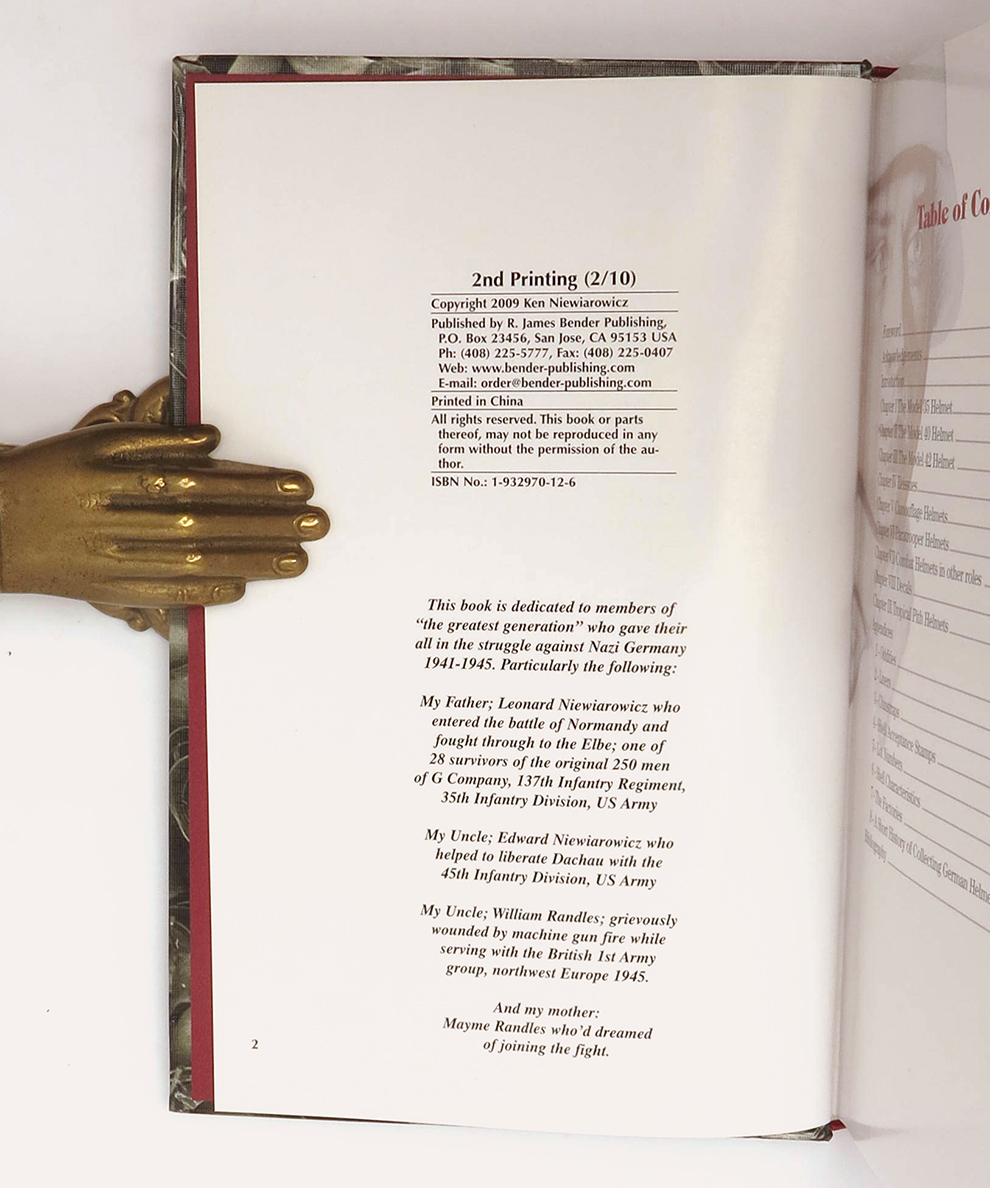 2nd Printing (2/10)
Copyright 2009 Ken Niewiarowicz
Published by R. James Bender Publishing,
P.O. Box 23456, San Jose, CA 95153 USA
Ph: (408) 225-5777, Fax: (408) 225-0407
Web: www.bender-publishing.com
E-mail: order@bender-publishing.com
Printed in China
All rights reserved. This book or parts
thereof, may not be reproduced in any
form without the permission of the au-
thor.
ISBN No.: 1-932970-12-6
This book is dedicated to members of
“the greatest generation” who gave their
all in the struggle against Nazi Germany
1941-1945. Particularly the following:
My Father; Leonard Niewiarowicz who
entered the battle of Normandy and
fought through to the Elbe; one of
28 survivors of the original 250 men
of G Company, 137th Infantry Regiment,
35th Infantry Division, US Army
My Uncle; Edward Niewiarowicz who
helped to liberate Dachau with the
45th Infantry Division, US Army
My Uncle; William Randles; grievously
wounded by machine gun fire while
serving with the British 1st Army
group, northwest Europe 1945.
And my mother:
Mayme Randles who’d dreamed
of joining the fight.
2
Table of Co
Foreword
Acknowledgements
Introduction
Chapter I The Model 35 Helmet
Chapter II The Model 40 Helmet
Chapter III The Model 42 Helmet
Chapter IV Reissues
Chapter V Camouflage Helmets
Chapter VI Paratrooper Helmets
Chapter VII Combat Helmets in other roles
Chapter VIII Decals
Chapter IX Tropical Pith Helmets
Appendices
2-Liners
3-Chinstraps
4-Shell Acceptance Stamps
5-Lot Numbers
6-Shell Characteristics
7-The Factories
8-A Short History of Collecting German Helme
Bibliography